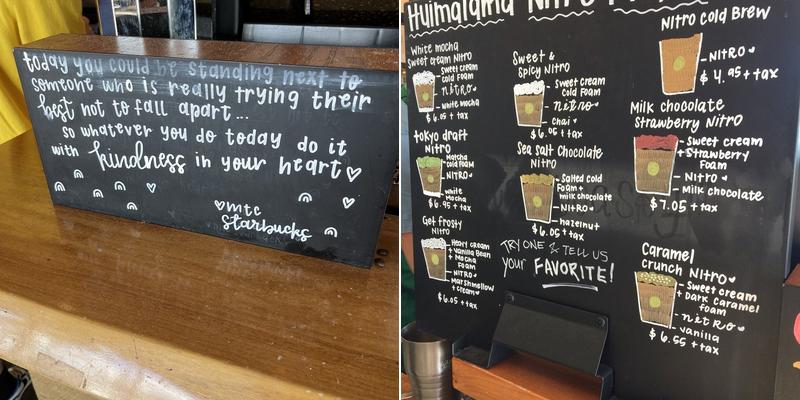 today you could be standing next to
someone who is really trying their
best not to fall apart...
so whatever you do today do it
with kindness in your heart
mtc
Starbucks
Huimalama Nitro
White mocha
Sweet cream Nitro
Sweet cream
cold Foam
nitro
white mocha
$6.05 + tax
tokyo draft
Nitro
Matcha
cold Foam
nitro
white
mocha
$6.95 + tax
Get frosty
Nitro
Heavy cream
+ Vanilla Bean
+ Mocha
Foam
NITRO
Marshmellow
+ cream
$6.05 + tax
Sweet &
Spicy Nitro
Sweet cream
Cold Foam
nitro
chai
$6.05 + tax
Sea salt Chocolate
Nitro
Salted cold
Foam +
milk chocolate
NITRO
hazelnut
$6.05 + tax
TRY ONE & TELL US
your FAVORITE!
Nitro cold Brew
NITRO
$4.95 + tax
Milk chocolate
Strawberry Nitro
Sweet cream
+ Strawberry
Foam
Nitro
Milk chocolate
$7.05 + tax
Caramel
crunch Nitro
Sweet cream
+ Dark Caramel
foam
nitro
vanilla
$6.55 + tax